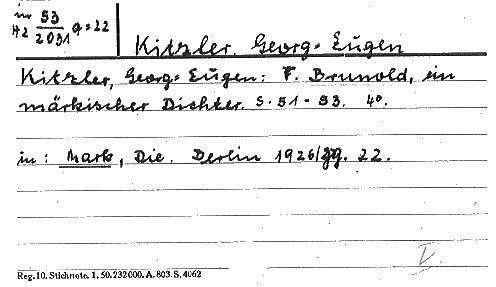 in 53
Hz 2031 q=22
Kitzler, Georg-Eugen
Kitzler, Georg-Eugen: F. Brunold, ein
märkischer Dichter. S. 51 - 53. 4o.
in: Mark, Die. Berlin 1926/ Jg. 22.
V.
Reg. 10. Stichnote. I, 50. 232000. A. 803. S. 4062